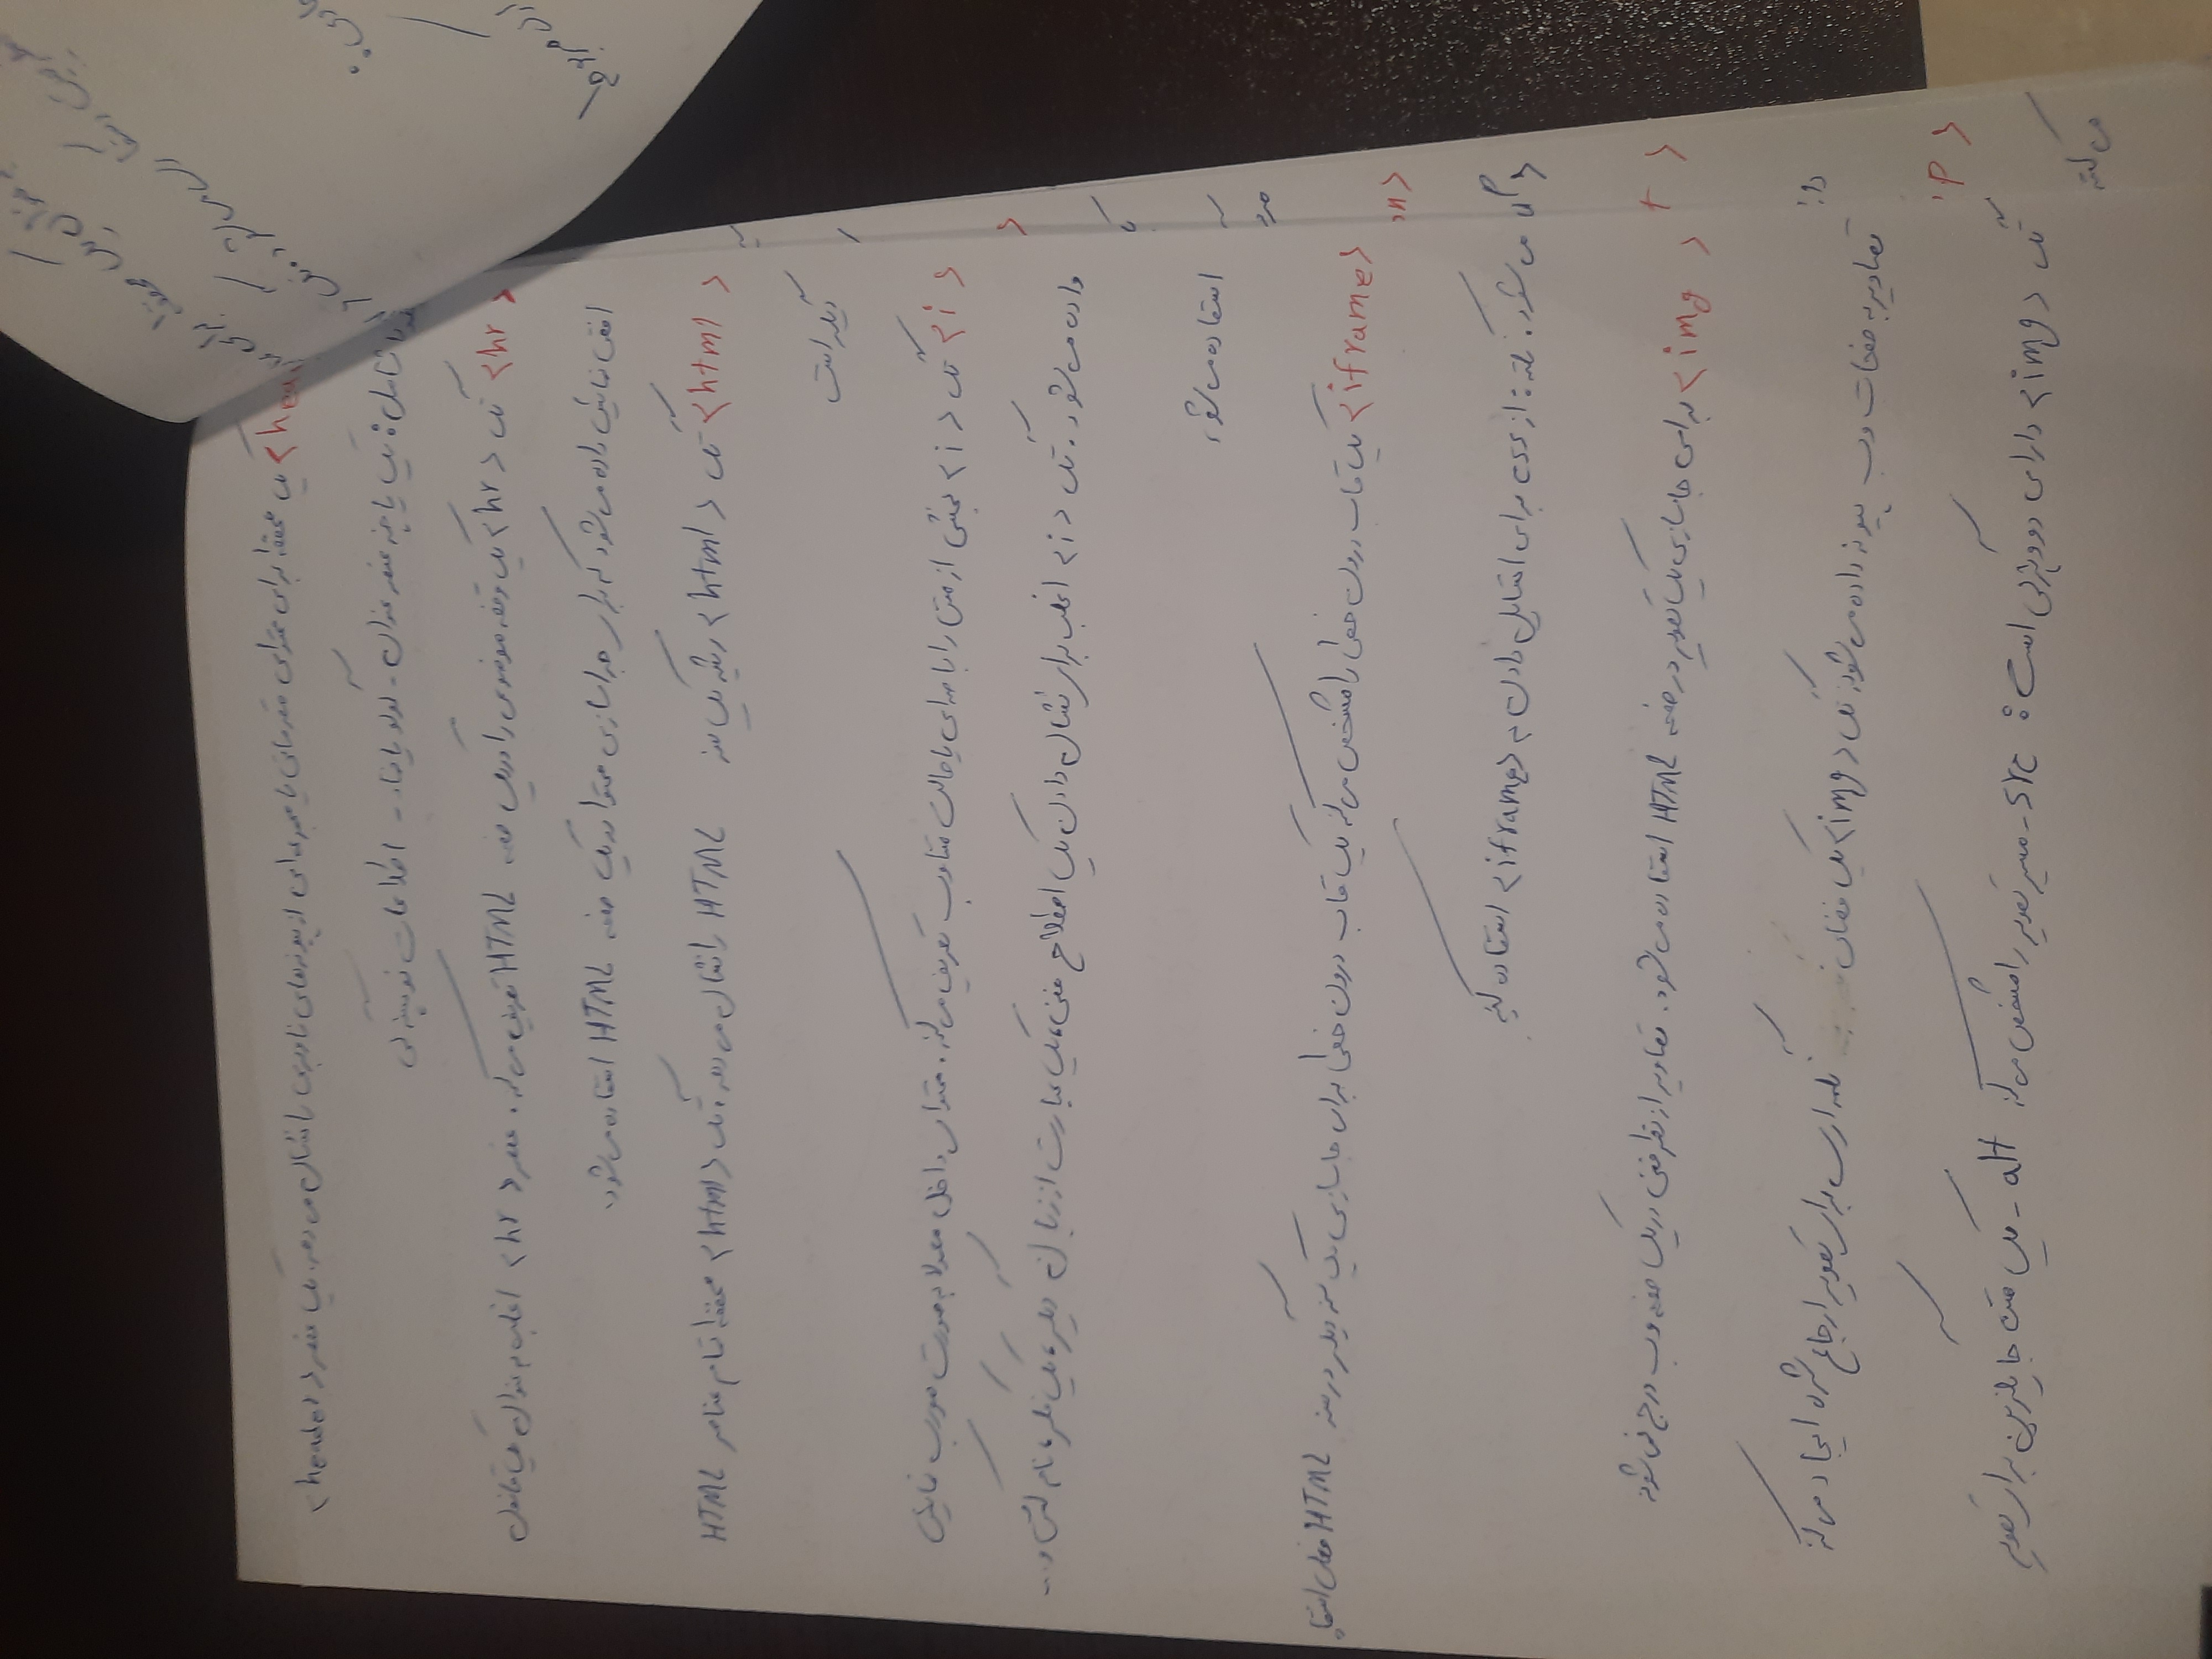 <hea یک محفظه برای محتوای مقدماتی یا مجموعه‌ای از پیوندهای ناوبری را نشان می‌دهد. یک عنصر <header>
شامل: یک یا چند عنصر عنوان - لوگو یا نماد - اطلاعات نویسندگی
<hr> تگ <hr> یک وقفه موضوعی را در یک صفحه HTML تعریف می‌کند. عنصر <hr> اغلب به عنوان یک قانون
افقی نمایش داده می‌شود که برای جداسازی محتوا در یک صفحه HTML استفاده می‌شود.
<html> تگ <html> ریشه یک سند HTML را نشان می‌دهد. تگ <html> محفظه تمام عناصر HTML
دیگر است
<i> تگ <i> بخشی از متن را با صدای یا حالت متناوب تعریف می‌کند. محتوای داخل معمولا به صورت مورب نمایش
داده می‌شود. تگ <i> اغلب برای نشان دادن یک اصطلاح فنی، یک عبارت از زبان دیگر، یک فکر، نام کشتی و...
استفاده می‌شود
<iframe> یک قاب درون خطی را مشخص می‌کند یک قاب درون خطی برای جاسازی یک سند دیگر در سند HTML فعلی استفاده
می‌شود. نکته: از css برای استایل دادن به <iframe> استفاده کنید
<img> برای جاسازی یک تصویر در صفحه HTML استفاده می‌شود. تصاویر از نظر فنی در یک صفحه وب درج نمی‌شوند
تصاویر به صفحات وب پیوند داده می‌شوند تگ <img> یک فضای نگهدارنده برای تصویر ارجاع شده ایجاد می‌کند
تگ <img> دارای دو ویژگی است: src - مسیر تصویر را مشخص می‌کند alt - یک متن جایگزین برای تصویر
می‌کند